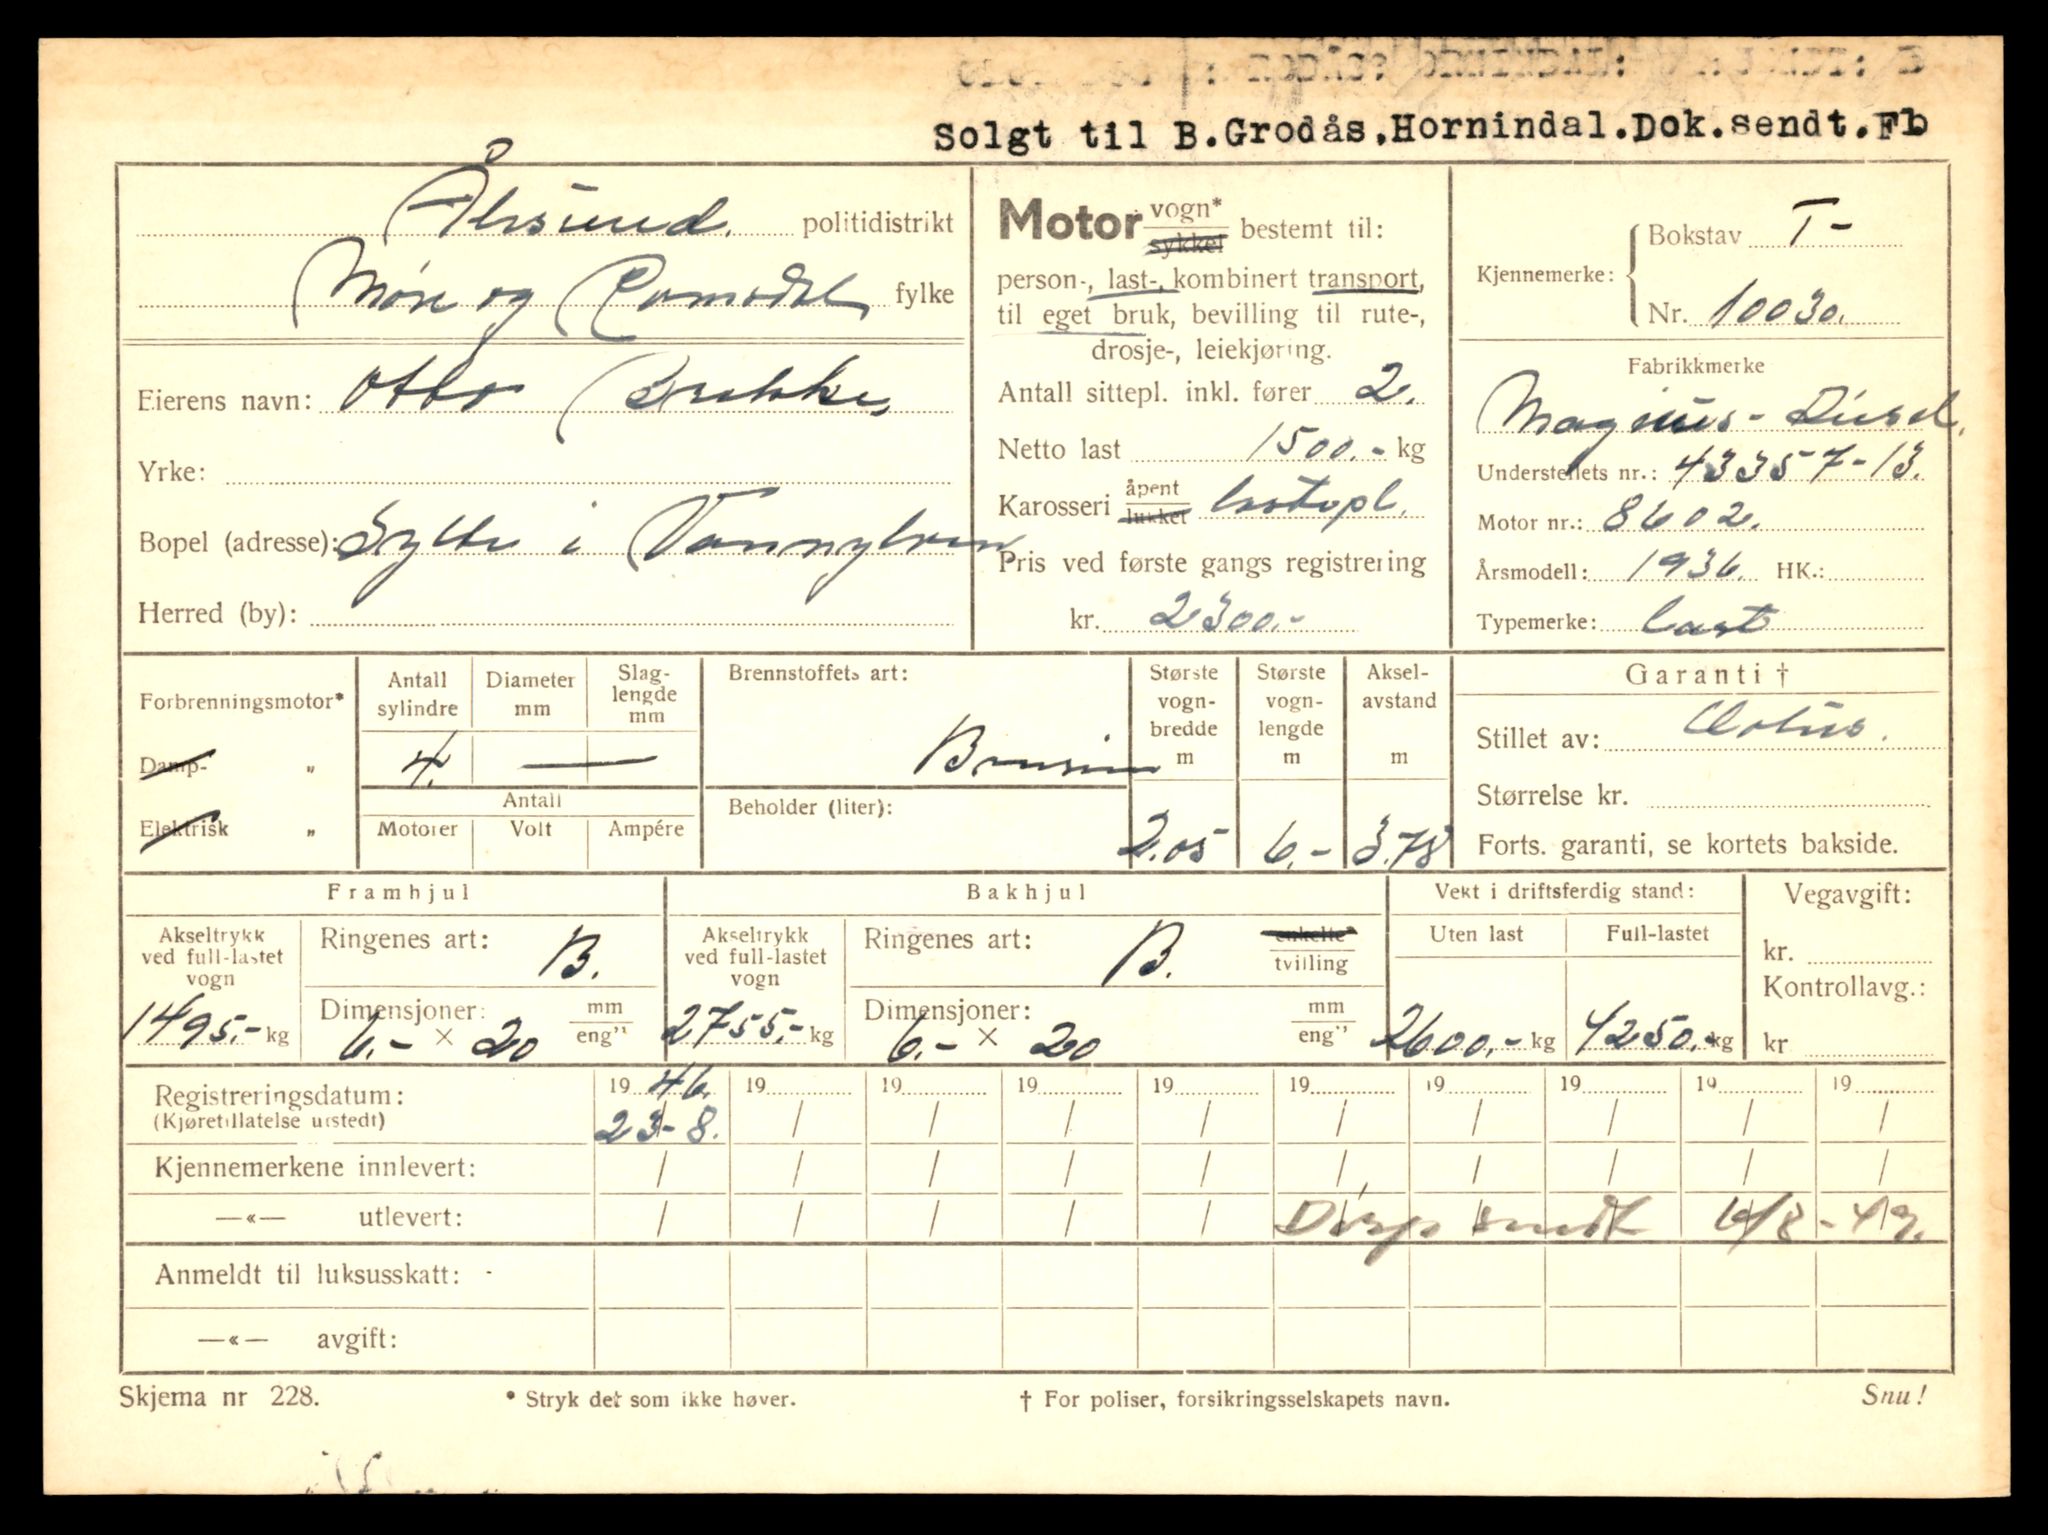 Solgt til B.Grodås,Hornindal.Dok.sendt.Fb
Ålesund. politidistrikt
Møre og Romsdal fylke
Eierens navn: Otto Brekke,
Yrke:
Bopel (adresse): Sylte i Vannylven
Herred (by):
Motor vogn* sykkel bestemt til:
person-, last-, kombinert transport,
til eget bruk, bevilling til rute-,
drosje-, leiekjøring.
Antall sittepl. inkl. fører 2.
Netto last 1500.- kg
Karosseri åpent lukket lastepl.
Pris ved første gangs registrering
kr. 2300.-
Kjennemerke: Bokstav T-
Nr. 10030.
Fabrikkmerke
Magirus-Diesel.
Understellets nr.: 43357-13.
Motor nr.: 8602.
Årsmodell: 1936. HK.:
Typemerke: Last
Forbrenningsmotor*
Damp- „
Elektrisk „
Antall sylindre 4.
Diameter mm —
Slaglengde mm
Antall
Motorer Volt Ampére
Brennstoffets art:
Bensin
Beholder (liter):
Største vognbredde m 2.05
Største vognlengde m 6.-
Akselavstand m 3.78
Garanti †
Stillet av:
Størrelse kr.
Forts. garanti, se kortets bakside.
Framhjul
Akseltrykk ved full-lastet vogn 1495.- kg
Ringenes art: B.
Dimensjoner: 6.- × 20 mm eng"
Bakhjul
Akseltrykk ved full-lastet vogn 2755.- kg
Ringenes art: B. enkelte* tvilling
Dimensjoner: 6.- × 20 mm eng"
Vekt i driftsferdig stand:
Uten last Full-lastet
2600.- kg 4250.- kg
Vegavgift:
kr.
Kontrollavg.:
kr
Registreringsdatum: 19 46. 19 19 19 19 19 19 19 19 19
(Kjøretillatelse utstedt) 23-8. / / / / / / / / /
Kjennemerkene innlevert: / / / / / / / / / /
—«— utlevert: / / / / / Disp sendt 6/8-49.
Anmeldt til luksusskatt:
—«— avgift:
Skjema nr 228. * Stryk det som ikke høver. † For poliser, forsikringsselskapets navn. Snu!